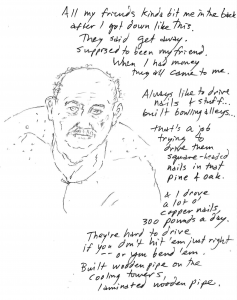 All my friends kinda bit me in the back
after I got down like this.
They said get away.
supposed to been my friend.
When I had money
they all come to me.
Always like to drive
nails & stuff...
built bowling alleys...
that's a job
trying to
drive them
square-headed
nails in that
pine & oak.
& I drove
a lot o'
copper nails,
300 pounds a day.
They're hard to drive
if you don't hit 'em just right
-- or you bend 'em.
Built wooden pipe on the
cooling towers,
laminated wooden pipe.